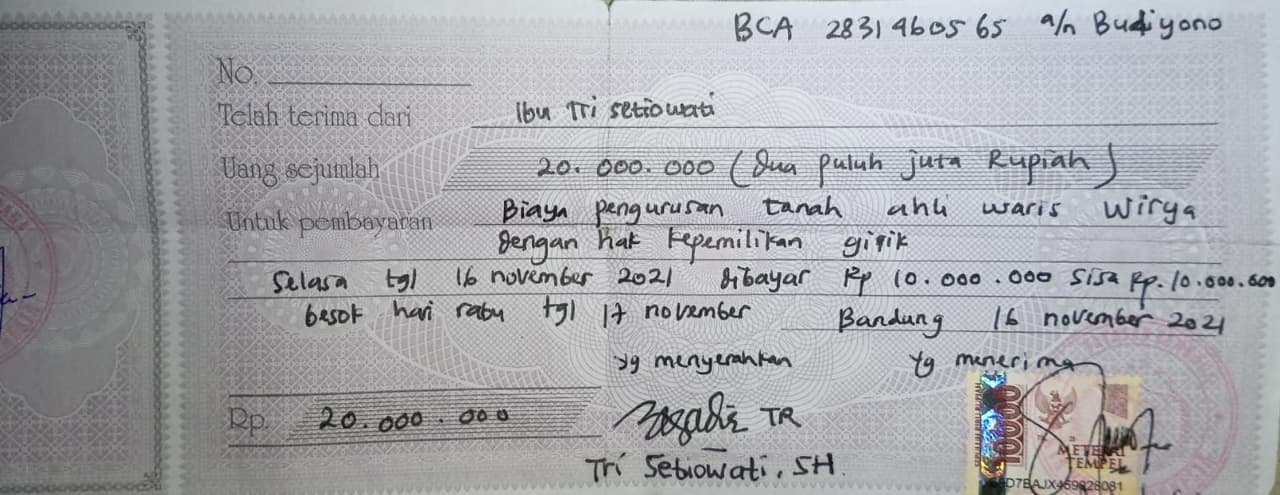 BCA 2831460565 a/n Budiyono
No.
Telah terima dari Ibu Tri Setiowati
Uang sejumlah 20.000.000 (Dua puluh juta Rupiah)
Untuk pembayaran Biaya pengurusan tanah ahli waris Wirya
dengan hak kepemilikan girik
Selasa tgl 16 november 2021 dibayar Rp 10.000.000 Sisa Rp.10.000.000
besok hari rabu tgl 17 november Bandung 16 november 2021
yg menyerahkan yg menerima
Rp. 20.000.000
TR
Tri Setiowati, SH.
10000
METERAI
TEMPEL
D7BAJX459828081